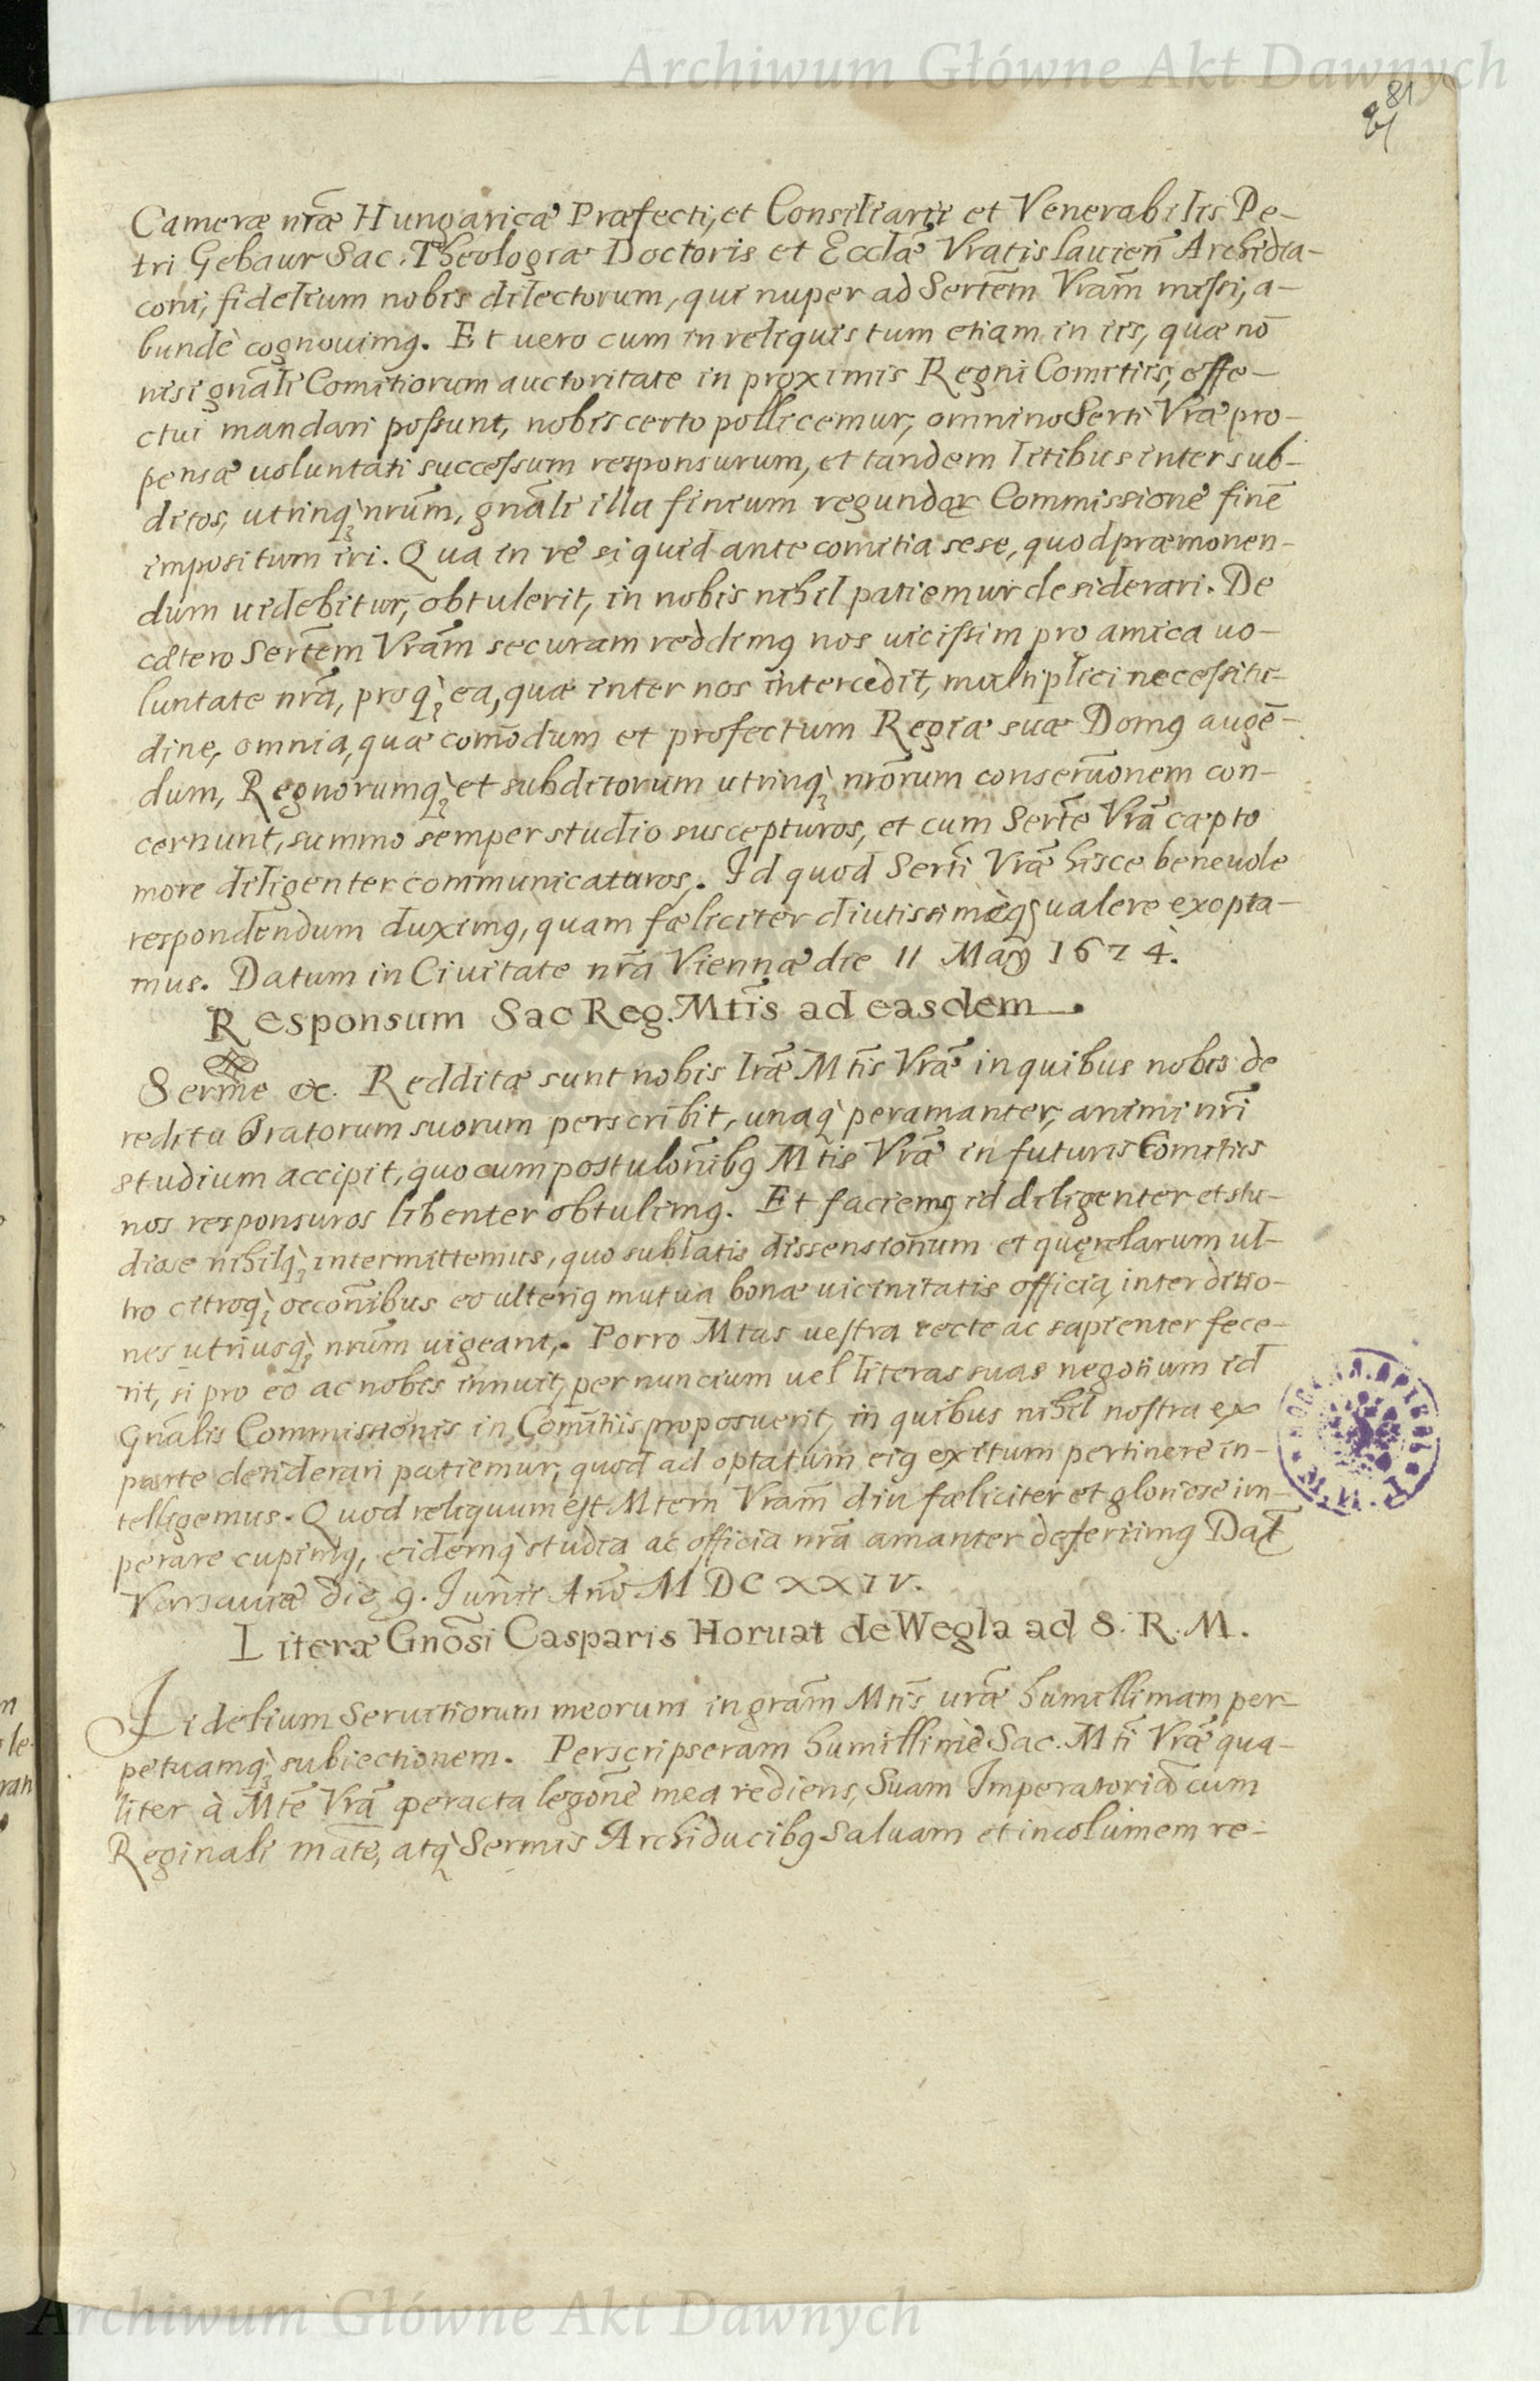 Archiwum Główne Akt Dawnych
81
Cameræ nræ Hungaricæ Præfecti, et Consiliarii et Venerabilis Pe-
tri Gebaur Sac. Theologiæ Doctoris et Ecclæ Vratislauien Archidia-
coni, fidelium nobis dilectorum, qui nuper ad Sertem Vram missi, a-
bundè cognouimus. Et uero cum in reliquis tum etiam in iis, quæ nō
nisi gnali Comitiorum auctoritate in proximis Regni Comitiis, effe-
ctui mandari possunt, nobis certo pollicemur, omnino Serti Vræ pro-
pensæ uoluntati successum responsurum, et tandem litibus inter sub-
ditos, utrinq; nrum, gnali illa finium regundor Commissione finē
impositum iri. Qua in re si quid ante comitia sese, quod præmonen-
dum uidebitur, obtulerit, in nobis nihil patiemur desiderari. De
cætero Sertem Vram securam reddimus nos uicissim pro amica uo-
luntate nra, proq; ea, quæ inter nos intercedit, multiplici necessitu-
dine, omnia, quæ comodum et profectum Regiæ suæ Domus augē-
dum, Regnorumq; et subditorum utrinq; nrorum conseruonem con-
cernunt, summo semper studio suscepturos, et cum Serte Vra cæpto
more diligenter communicaturos. Id quod Serti Vræ hisce beneuole
respondendum duximus, quam fæliciter diutissimèq; ualere exopta-
mus. Datum in Ciuitate nra Viennæ die 11 Maij 1624.
Responsum Sac Reg. Mtis ad easdem
Serme &c. Redditæ sunt nobis lræ Mtis Vræ in quibus nobis de
reditu Oratorum suorum perscribit, unaq; peramanter, animi nri
studium accipit, quo cum postulonibus Mtis Vræ in futuris Comitiis
nos responsuros libenter obtulimus. Et faciemus id diligenter et stu-
diose nihilq; intermittemus, quo sublatis dissensionum et quęrelarum ul-
tro citroq; occonibus eo ulterius mutua bonæ uicinitatis officia inter ditio-
nes utriusq; nrum uigeant. Porro Mtas uestra recte ac sapienter fece-
rit, si pro eo ac nobis innuit, per nuncium uel literas suas negotium id
Gnalis Commissionis in Comitiis proposuerit, in quibus nihil nostra ex
parte desiderari patiemur, quod ad optatum eius exitum pertinere in-
telligemus. Quod reliquum est Mtem Vram diu fæliciter et gloriose im-
perare cupimus, eidemq; studia ac officia nra amanter deferimus Dat
Varsauiæ die 9. Iunii Ano MDCXXIV.
Literæ Gnosi Casparis Horuat de Wegla ad S. R. M.
Fidelium Seruitiorum meorum in gram Mtis uræ humillimam per-
petuamq; subiectionem. Perscripseram humillime Sac. Mti Vræ qua-
liter à Mte Vra peracta legone mea rediens, Suam Imperatoria cum
Reginali mate, atq; Sermis Archiducibus saluam et incolumem re-
Archiwum Główne Akt Dawnych